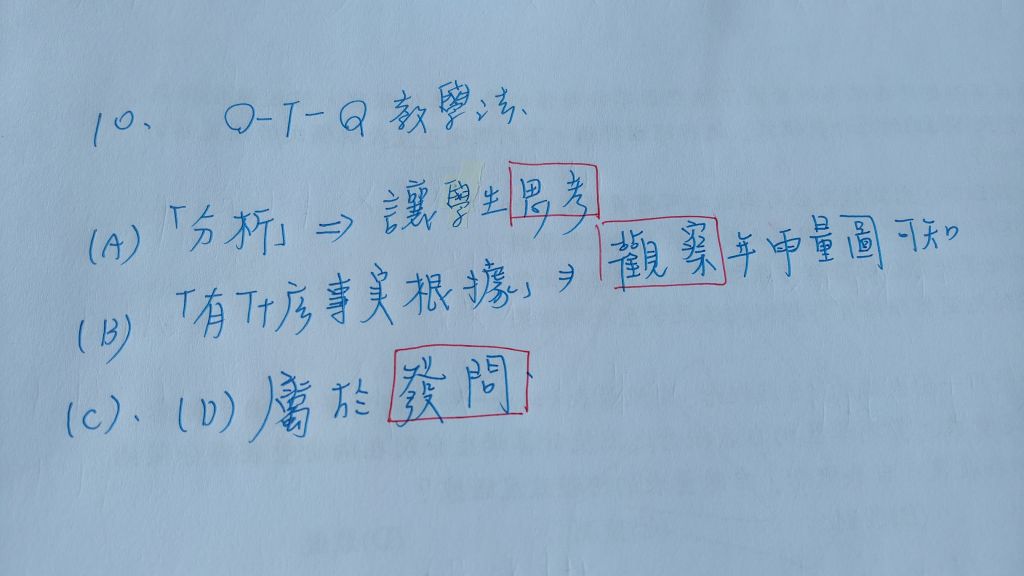 10. O-T-Q 教學法.
(A)「分析」⇒ 讓學生思考
(B)「有什麼事實根據」⇒ 觀察年雨量圖可知
(C)、(D) 屬於發問.